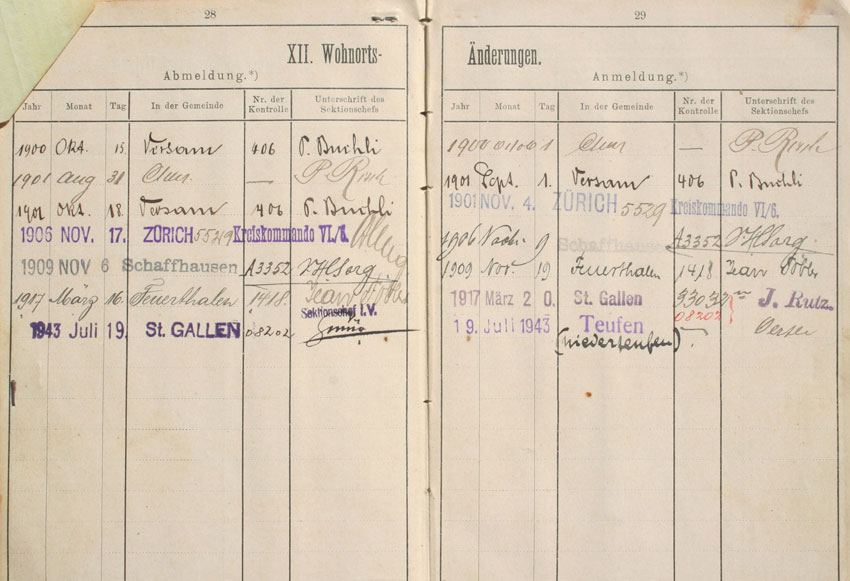 28
XII. Wohnorts-
Abmeldung.*)
Jahr Monat Tag In der Gemeinde Nr. der Kontrolle Unterschrift des Sektionschefs
1900 Okt. 15 Versam 406 P. Buchli
1901 Aug 31 Chur —
1901 Okt. 18. Versam 406 P. Buchli
1906 NOV. 17. ZÜRICH 5529 Kreiskommando VI/6.
1909 NOV 6 Schaffhausen A3352
1917 März 16. Feuerthalen 1418. Jean
Sektionschef I.V.
1943 Juli 19. St. GALLEN 08202
29
Änderungen.
Anmeldung.*)
Jahr Monat Tag In der Gemeinde Nr. der Kontrolle Unterschrift des Sektionschefs
1900 1 Chur —
1901 Sept. 1. Versam 406 P. Buchli
1901 NOV. 4. ZÜRICH 5529 Kreiskommando VI/6
1906 9 Schaffhausen A3352
1909 Nov. 19 Feuerthalen 1418 Jean
1917 März 2 0. St. Gallen 33032 J. Rutz.
08202
19. Juli 1943 Teufen
(Niederteufen).